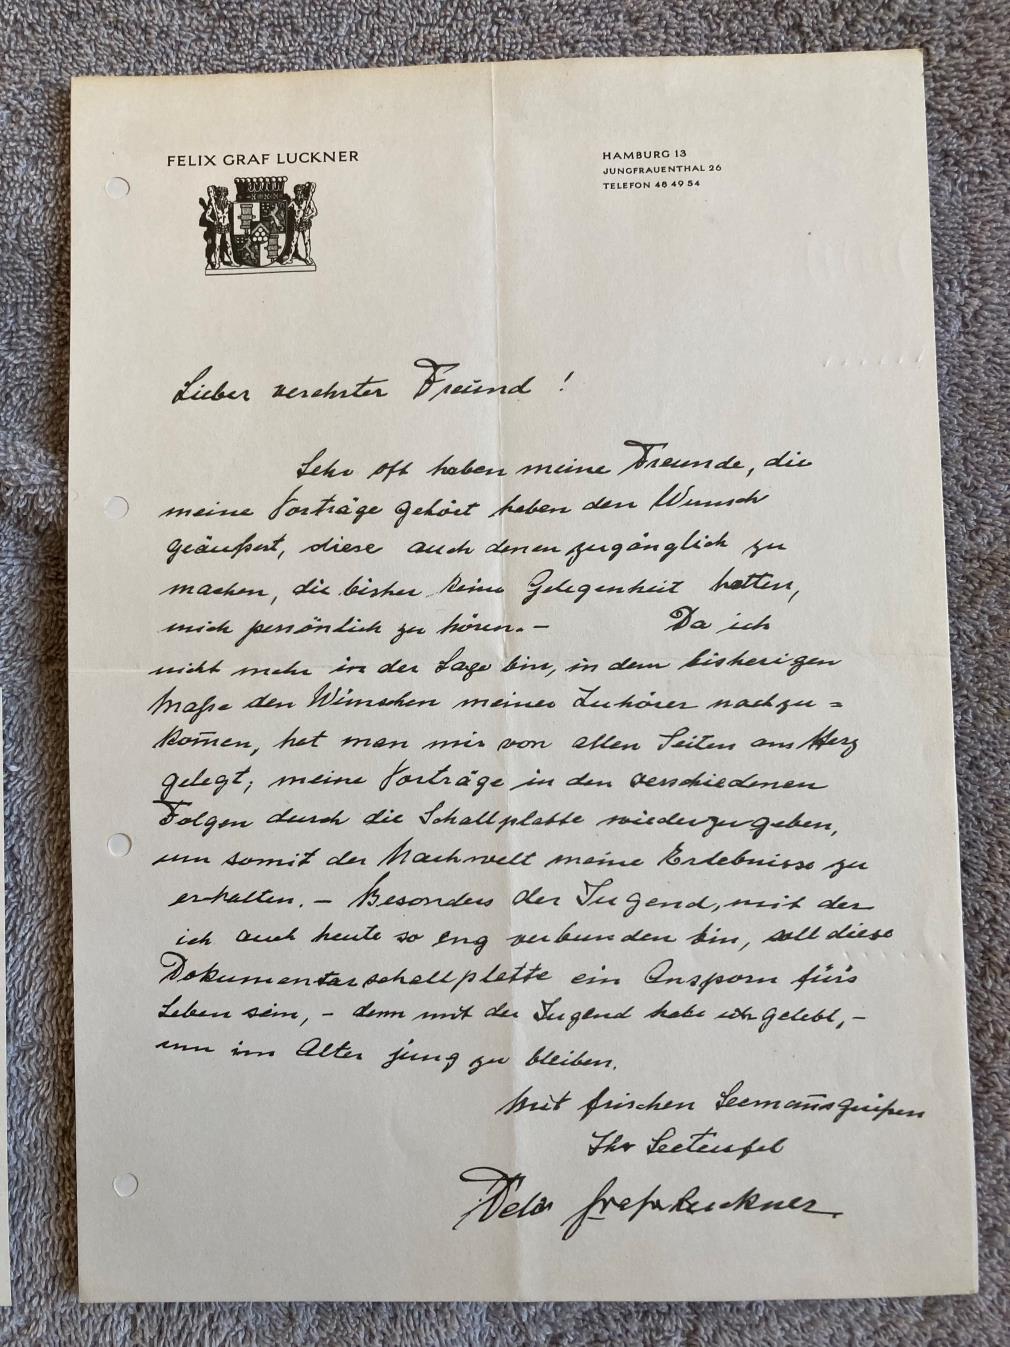 FELIX GRAF LUCKNER
HAMBURG 13
JUNGFRAUENTHAL 26
TELEFON 48 49 54
Lieber verehrter Freund !
Sehr oft haben meine Freunde, die
meine Vorträge gehört haben den Wunsch
geäußert, diese auch denen zugänglich zu
machen, die bisher keine Gelegenheit hatten,
mich persönlich zu hören. – Da ich
nicht mehr in der Lage bin, in dem bisherigen
Maße den Wünschen meiner Zuhörer nachzu =
kom̄en, hat man mir von allen Seiten ans Herz
gelegt, meine Vorträge in den verschiedenen
Folgen durch die Schallplatte wiederzugeben,
um somit der Nachwelt meine Erlebnisse zu
erhalten. – Besonders der Jugend, mit der
ich auch heute so eng verbunden bin, soll diese
Dokumentarschallplatte ein Ansporn für's
Leben sein, – denn mit der Jugend habe ich gelebt, –
um im Alter jung zu bleiben.
Mit frischen Seeman̄sgrüßen
Ihr Seeteufel
Felix Graf Luckner.